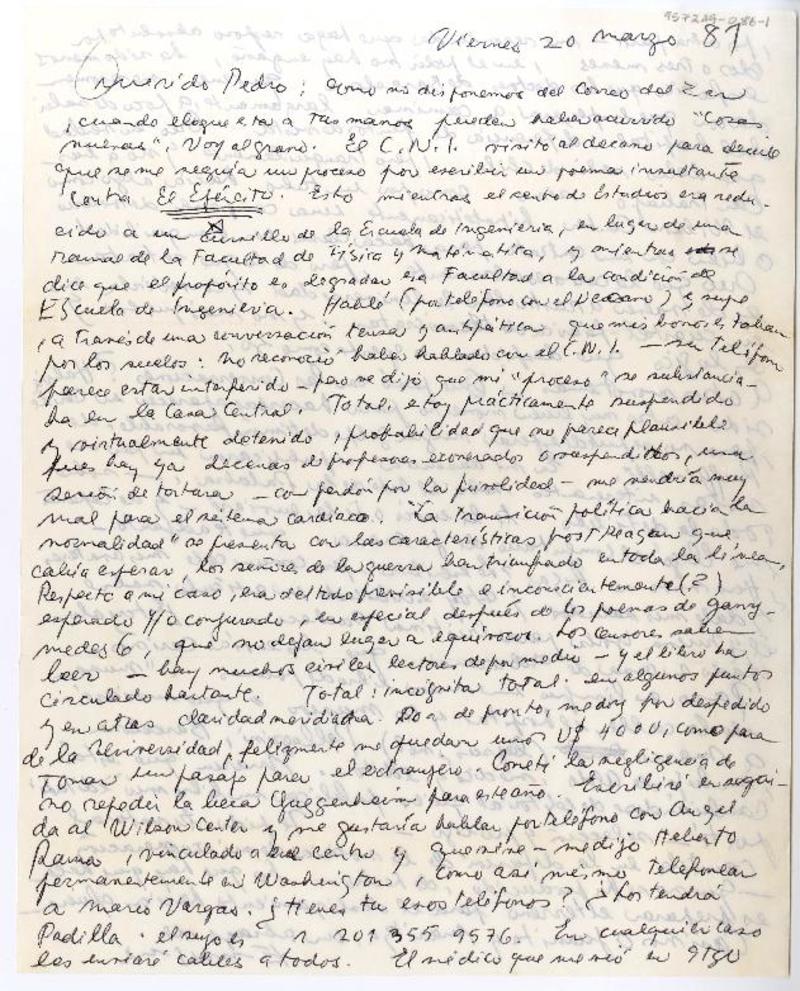 957249-0286-1
Viernes 20 marzo 81
Querido Pedro; como no disponemos del Correo del Zar
, cuando llegue esta a tus manos pueden haber ocurrido "cosas
nuevas", Voy al grano. El C.N.I. visitó al decano para decirle
que se me seguía un proceso por escribir un poema insultante
contra El Ejército. Esto mientras el centro de Estudios era redu-
cido a un cursillo de la Escuela de Ingeniería, en lugar de una
rama de la Facultad de Física y Matemática, y mientras se
dice que el propósito es degradar esa Facultad a la condición de
Escuela de Ingeniería. Hablé (por teléfono con el Decano) y supe
, a través de una conversación tensa y antipática que mis bonos estaban
por los suelos: no reconoció haber hablado con el C.N.I. — su teléfono
parece estar interferido — pero me dijo que mi "proceso" se substancia-
ba en la Casa Central. Total, estoy prácticamente suspendido
y virtualmente detenido, probabilidad que no parece plausible
pues hay ya decenas de profesores exonerados o suspendidos, una
sesión de tortura — con perdón por la frivolidad — me vendría muy
mal para el sistema cardíaco. "La transición política hacia la
normalidad" se presenta con las características post Reagan que
cabía esperar, los señores de la guerra han triunfado en toda la línea,
Respecto a mi caso, era del todo previsible e inconscientemente (?)
esperado y/o conjurado, en especial después de los poemas de Gany-
medes 6, que no dejan lugar a equívocos. Los censores saben
leer — hay muchos civiles lectores de por medio — y el libro ha
circulado bastante. Total: incógnita total. en algunos puntos
y en otros claridad meridiana. De pronto, me doy por despedido
de la Universidad, felizmente me quedan unos U$ 4000, como para
tomar un pasaje para el extranjero. Cometí la negligencia de
no repedir la beca Guggenheim para este año. Escribiré enseguí-
da al Wilson Center y me gustaría hablar por teléfono con Angel
Rama, vinculado a ese centro y que vive — me dijo Heberto
permanentemente en Washington, como así mismo telefonear
a Mario Vargas. ¿tienes tu esos teléfonos? ¿Los tendrá
Padilla. el suyo es 1 201 355 9576. En cualquier caso
les enviaré cables a todos. El médico que me vió en